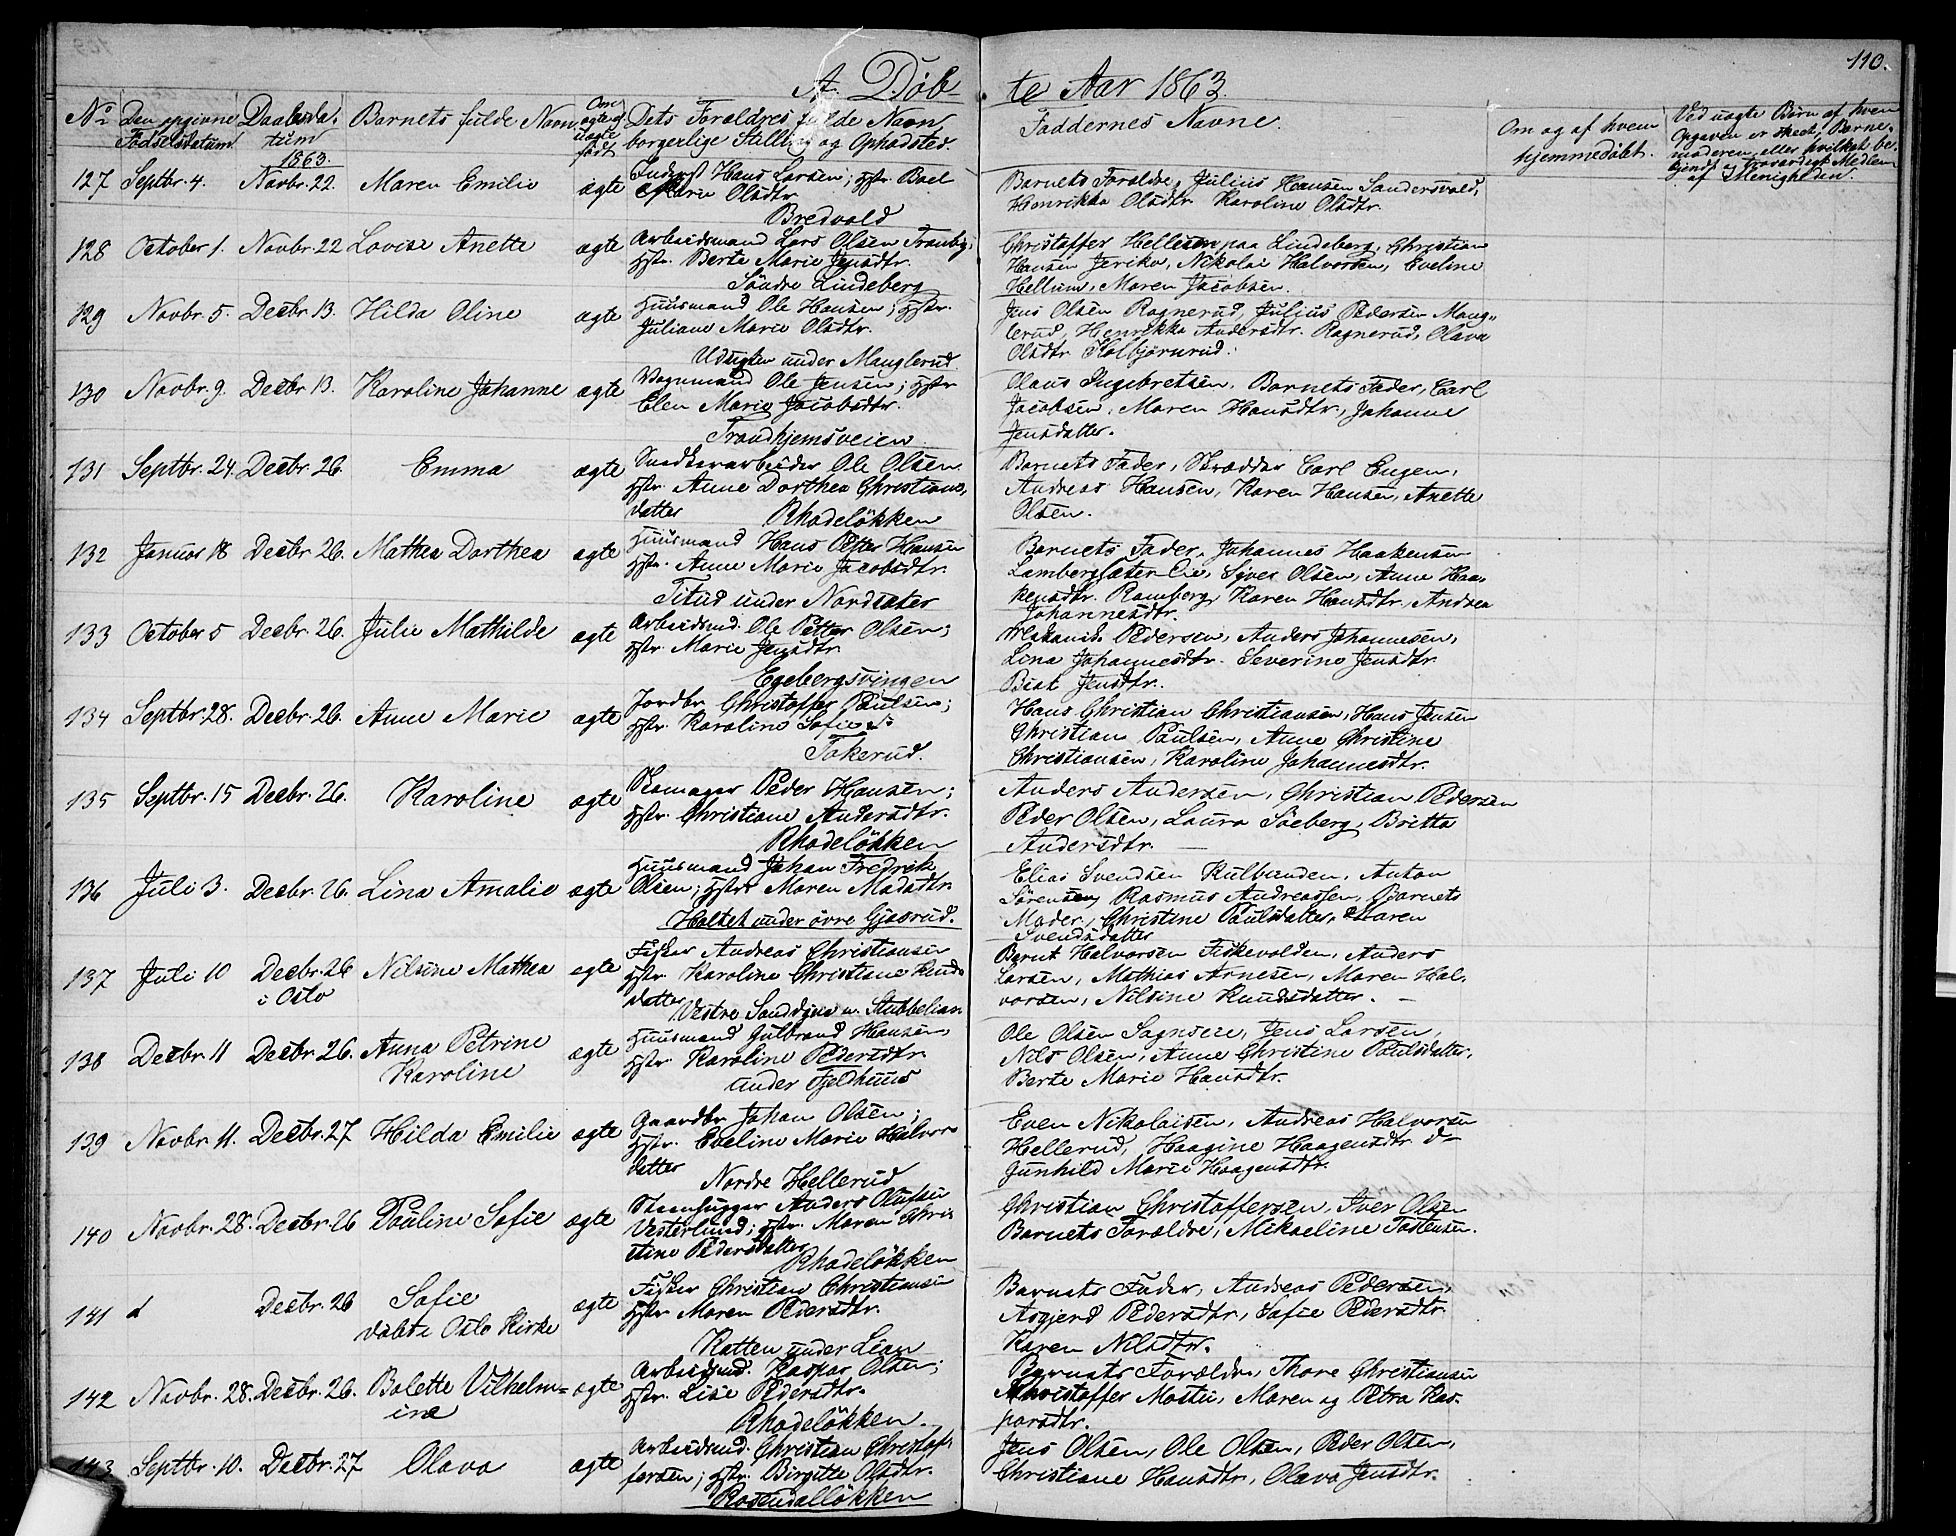 110.
A. Døb te Aar 1863.
No Den opgivne Fødselsdatum Daabsdatum 1863. Barnets fulde Navn Om ægte el. uægte født Dets Forældres fulde Navn borgerlige Stilling og Opholdsted. Faddernes Navne. Om og af hvem hjemmedøbt. Ved uægte Børn af hvem Opgaven er skeet, Barnemoderen eller hvilket bekjendt og troværdigt Medlem af Menigheden.
127 Septbr. 4. Novbr. 22. Maren Emilie ægte Inderst Hans Larsen; Hstr. Boel
Marie Olsdtr.
Bredvold
Barnets Forældre, Julius Hansen Sandersvold,
Henrikka Olsdtr. Karoline Olsdtr.
128 October 1. Novbr. 22 Lovise Anette ægte Arbeidsmand Lars Olsen Tranby;
Hstr. Berte Marie Jensdtr.
Søndre Lindeberg
Christoffer Hellesen paa Lindeberg, Christian
Hansen Jeriko, Nikolai Halvorsen, Eveline
Hellum, Maren Jacobsen.
129 Novbr. 5. Decbr. 13. Hilda Oline ægte Huusmand Ole Hansen; Hstr.
Juliane Marie Olsdtr.
Udsigten under Manglerud.
Jens Olsen Ragnerud, Julius Pedersen Mang-
lerud, Henrikka Andersdtr. Ragnerud, Olava
Olsdtr Kolbjørnrud.
130 Novbr. 9. Decbr 13. Karoline Johanne ægte Vognmand Ole Jensen; Hstr
Elen Marie Jacobsdtr.
Trondhjemsveien
Olaus Ingebretsen, Barnets Fader, Carl
Jacobsen, Maren Hansdtr., Johanne
Jensdatter.
131 Septbr. 24. Decbr. 26. Emma ægte Snedkerarbeider Ole Olsen
Hstr. Anne Dorthea Christians-
datter Rhodeløkken
Barnets Fader, Skrædder Carl Eugen,
Andreas Hansen, Karen Hansen, Anette
Olsen.
132 Januar 18 Decbr 26. Mathea Dorthea ægte Huusmand Hans Petter Hansen
Hstr. Anne Marie Jacobsdtr.
Titud under Nordseter
Barnets Fader, Johannes Haakensen
Lambergsæter Eie, Syver Olsen, Anne Haa-
kensdtr. Ramberg, Karen Hansdtr, Andrea
Johannesdtr.
133 October 5 Decbr. 26. Julie Mathilde ægte Arbeidsmd. Ole Petter Olsen;
Hstr. Marie Jensdtr.
Egebergsvingen
Mekanik. Pedersen, Anders Johannesen,
Lina Johannesdtr. Severine Jensdtr.
Beat Jensdtr.
134 Septbr. 28. Decbr. 26. Anne Marie ægte Jordbr. Christoffer Paulsen;
Hstr. Karoline Sofie
Tokerud.
Hans Christian Christiansen, Hans Jensen
Christian Paulsen, Anne Christine
Christiansen, Karoline Johannesdtr.
135 Septbr. 15 Decbr. 26. Karoline ægte Skomager Peder Hansen;
Hstr. Christiane Andersdtr.
Rhodeløkken
Anders Andersen, Christian Pedersen
Peder Olsen, Laura Søeberg, Britta
Andersdtr. —
136 Juli 3. Decbr. 26. Lina Amalie ægte Huusmand Johan Fredrik
Olsen; Hstr. Maren Madsdtr.
Holtet under øvre Gjøsrud.
Elias Svendsen Kulbunden, Anton
Sørensen, Rasmus Andreassen, Barnets
Moder, Christine Paulsdatter, Maren
Svendsdatter
137 Juli 10 Decbr. 26 i Oslo Nilsine Mathea ægte Fisker Andreas Christiansen
Hstr. Karoline Christiane Knuds-
datter Vestre Sandvigen u. Stubbelian
Bernt Halvorsen Fiskevolden, Anders
Larsen, Mathias Arnesen, Maren Hal-
vorsen, Nilsine Knudsdatter. —
138 Decbr. 11 Decbr. 26. Anna Petrine Karoline ægte Huusmand Gulbrand Hansen
Hstr. Karoline Pedersdtr.
under Fjeldhuus
Ole Olsen Sagneie, Jens Larsen,
Nils Olsen, Anne Christine Paulsdatter,
Berte Marie Hansdtr.
139 Novbr. 11. Decbr. 27 Hilda Emilie ægte Gaardbr. Johan Olsen;
Hstr. Eveline Marie Halvors-
datter
Nordre Hellerud
Even Nikolaisen, Andreas Halvorsen
Hellerud, Haagine Haagensdtr. do
Gunhild Marie Haagensdtr.
140 Novbr. 28. Decbr. 26 Pauline Sofie ægte Steenhugger Anders Olufsen
Vesterlund; Hstr. Maren Chris-
tine Pedersdatter
Rhodeløkken
Christian Christoffersen, Iver Olsen
Barnets Forældre, Mikaeline Tostensen.
141 d Decbr. 26 Sofie døbt i Oslo Kirke ægte Fisker Christian Christiansen
Hstr. Maren Pedersdtr.
Katten under Lian
Barnets Fader, Andreas Pedersen,
Asgjerd Pedersdtr., Sofie Pedersdtr.
Karen Nilsdtr.
142 Novbr. 28. Decbr. 26. Bolette Vilhelmine ægte Arbeidsmd. Kaspar Olsen;
Hstr. Lise Pedersdtr.
Rhodeløkken.
Barnets Forældre, Thore Christiansen
Christoffer Mostu, Maren og Petra Kas-
parsdtr.
143 Septbr. 10. Decbr. 27 Olava ægte Arbeidsmd. Christian Christof-
fersen; Hstr. Birgitte Olsdtr.
Rosendalløkken
Jens Olsen, Ole Olsen, Peder Olsen,
Christiane Hansdtr., Olava Jensdtr.